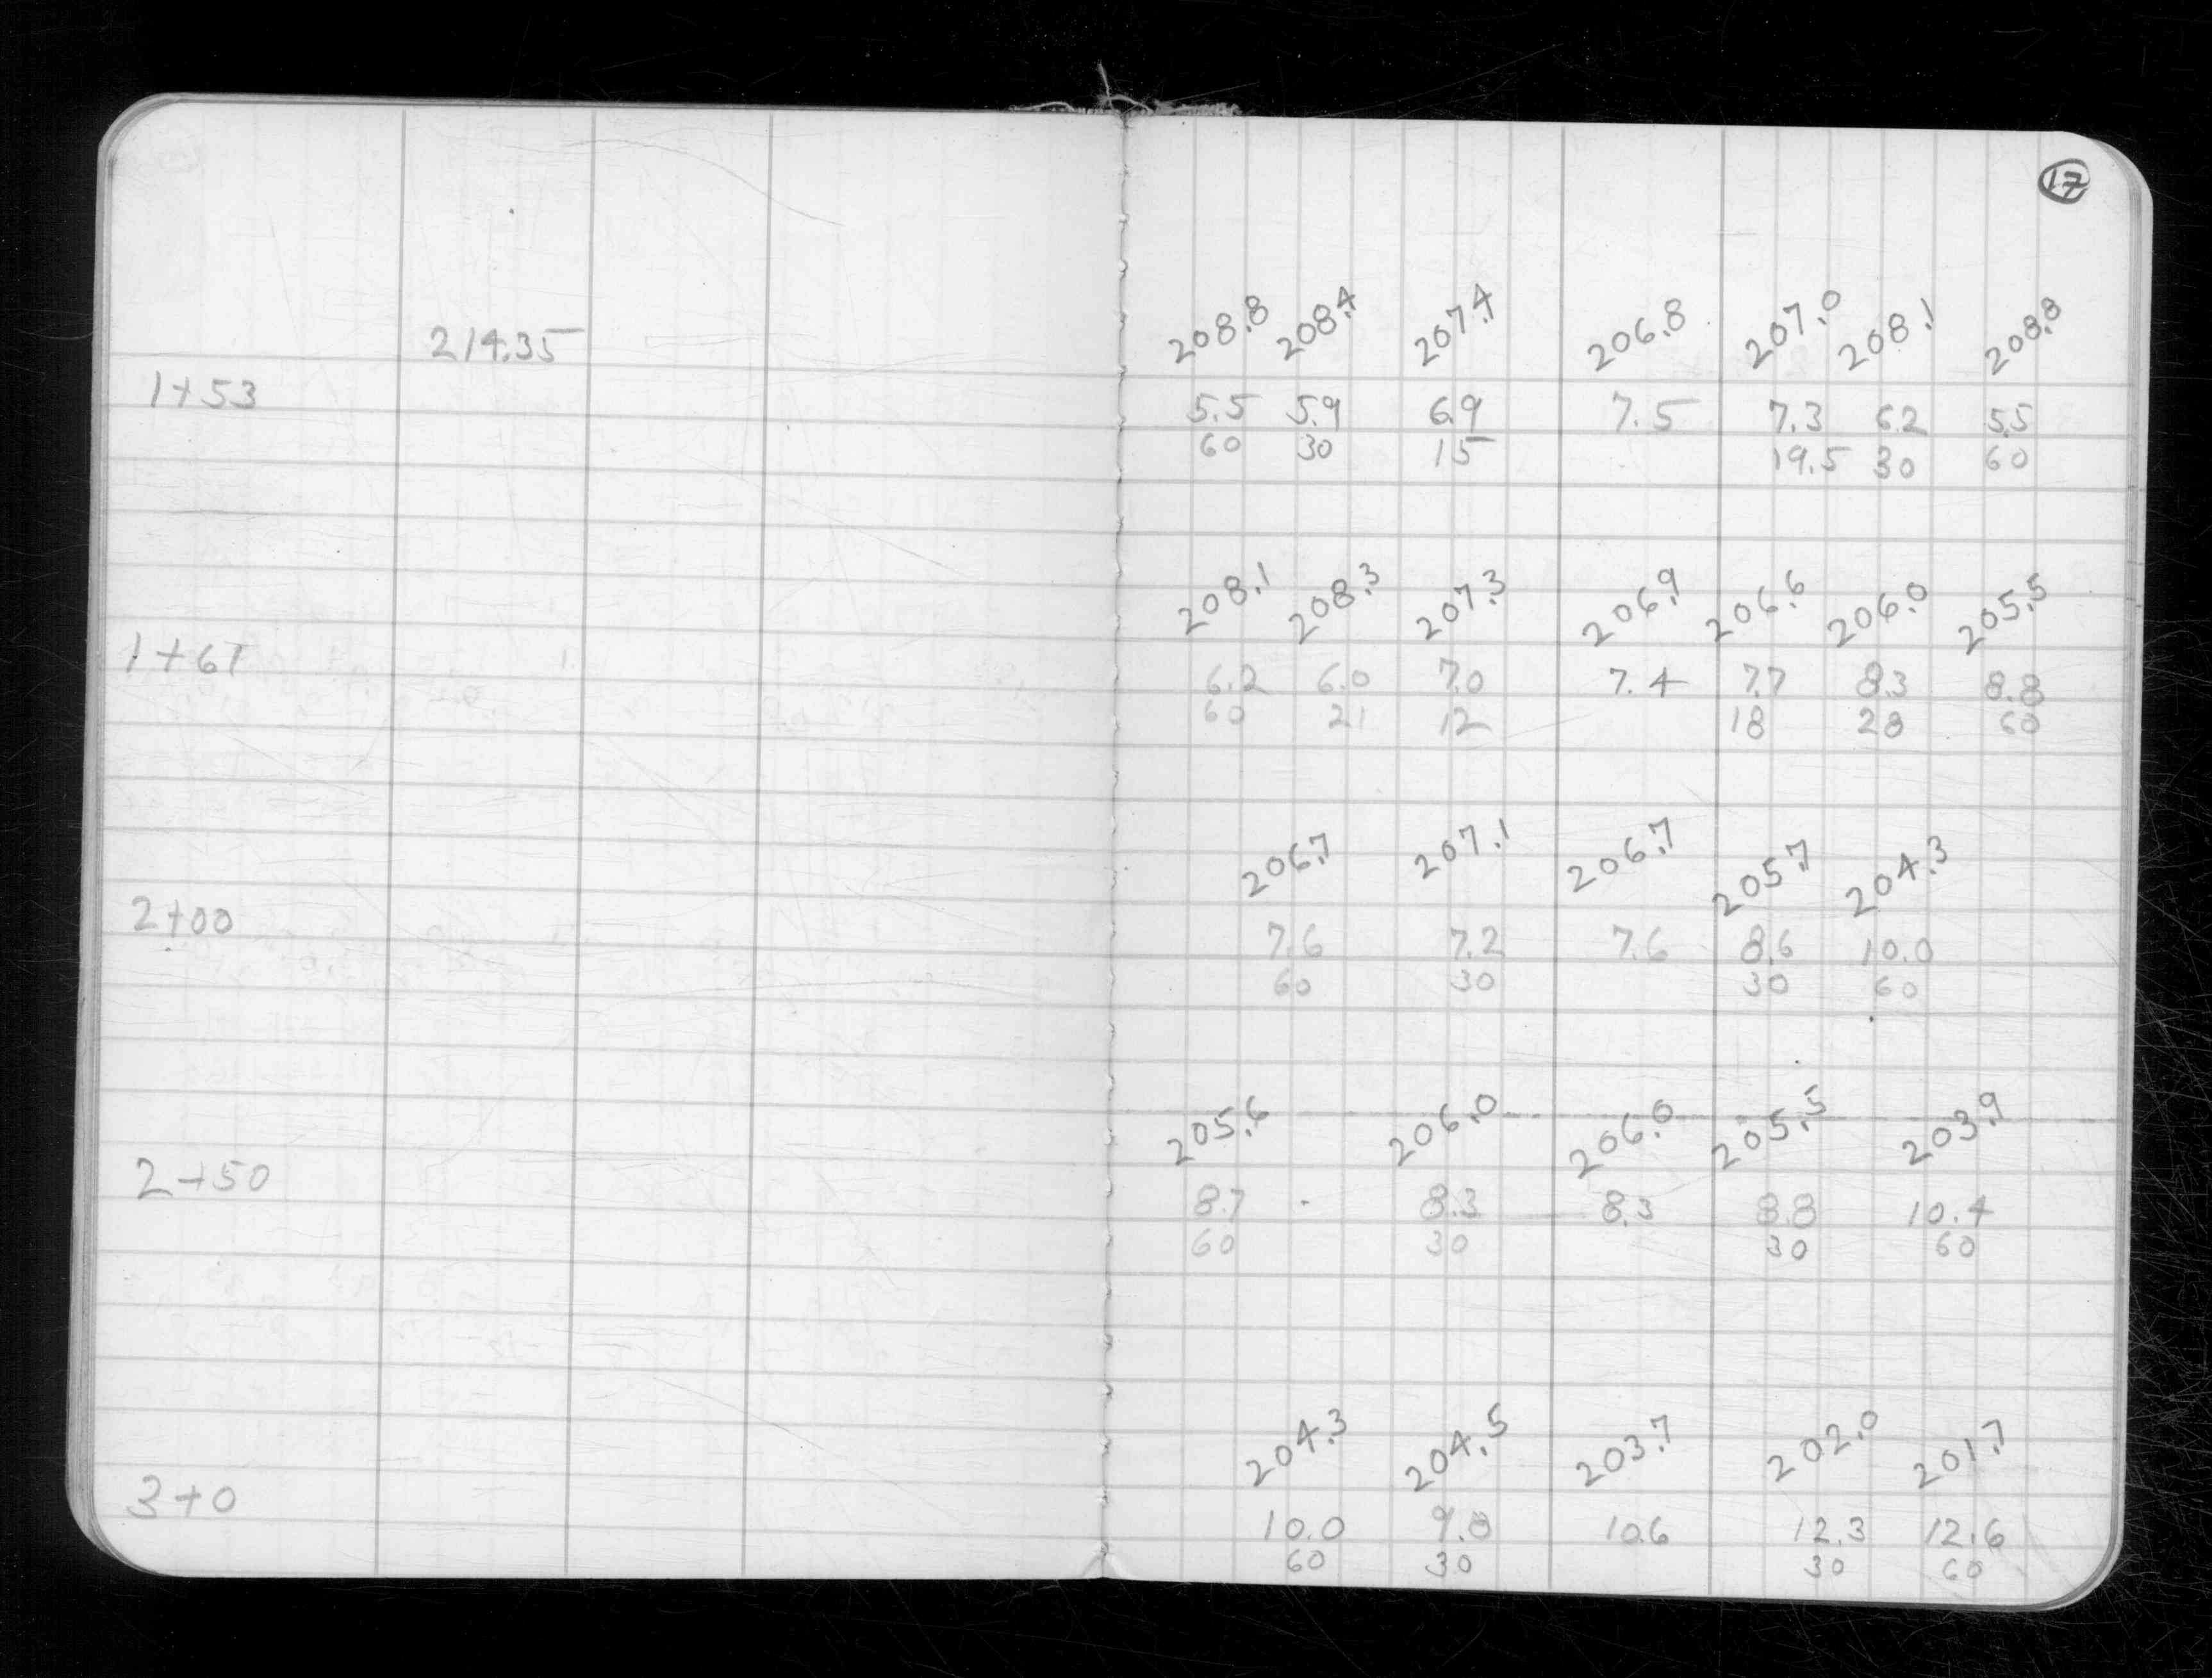 17
214.35
208.8 208.4 207.4 206.8 207.0 208.1 208.8
1+53 5.5 5.9 6.9 7.5 7.3 6.2 5.5
60 30 15 19.5 30 60
208.1 208.3 207.3 206.9 206.6 206.0 205.5
1+67 6.2 6.0 7.0 7.4 7.7 8.3 8.8
60 21 12 18 28 60
206.7 207.1 206.7 205.7 204.3
2+00 7.6 7.2 7.6 8.6 10.0
60 30 30 60
205.6 206.0 206.0 205.5 203.9
2+50 8.7 8.3 8.3 8.8 10.4
60 30 30 60
204.3 204.5 203.7 202.0 201.7
3+0 10.0 9.8 10.6 12.3 12.6
60 30 30 60